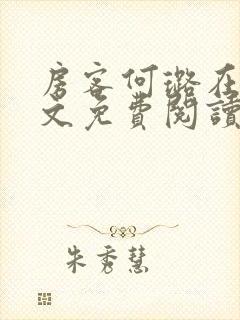 房客何璐在
文免費閱讀
朱秀慧